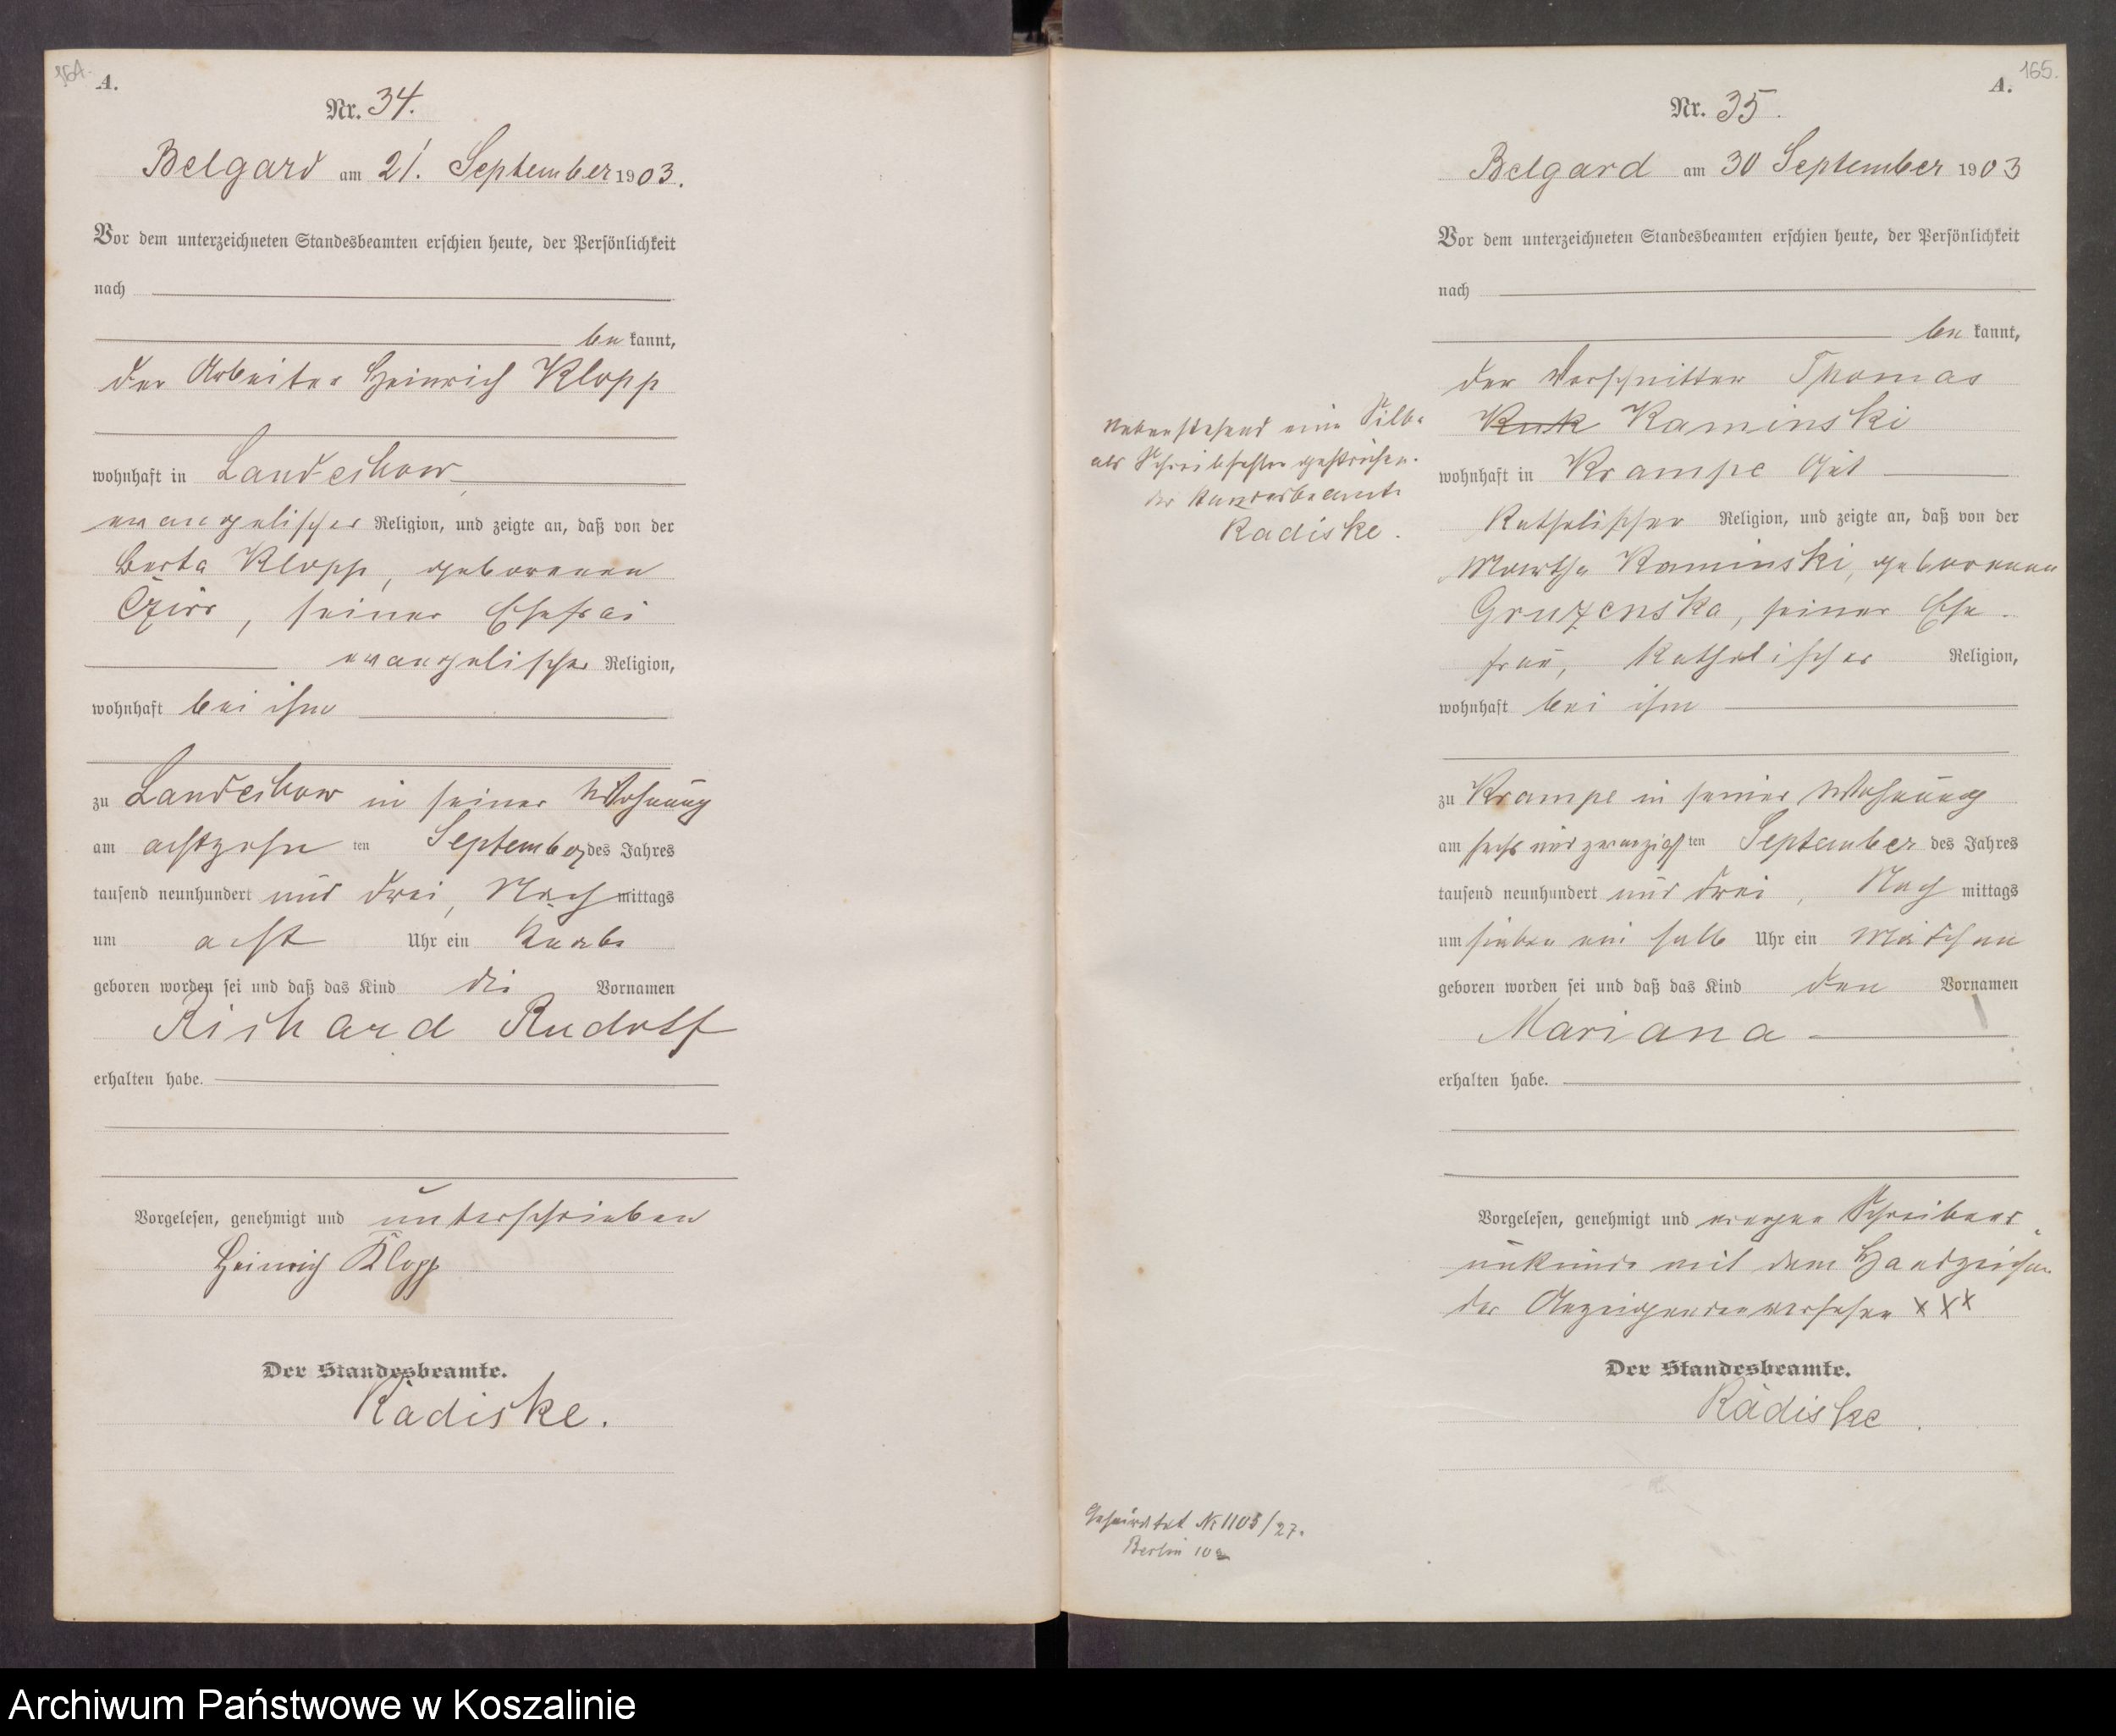 164.
A.
Nr. 34.
Belgard am 21. September 1903.
Vor dem unterzeichneten Standesbeamten erschien heute, der Persönlichkeit
nach
be kannt,
der Arbeiter Heinrich Klopp
wohnhaft in Landechow
evangelischer Religion, und zeigte an, daß von der
Berta Klopp, geborenen
Czirr, seiner Ehefrau
evangelischer Religion,
wohnhaft bei ihm
zu Landechow in seiner Wohnung
am achtzehn ten September des Jahres
tausend neunhundert und drei, Nach mittags
um acht Uhr ein Knabe
geboren worden sei und daß das Kind die Vornamen
Richard Rudolf
erhalten habe.
Vorgelesen, genehmigt und unterschrieben
Heinrich Klopp
Der Standesbeamte.
Radiske.
165.
A.
Nr. 35.
Belgard am 30 September 1903
Vor dem unterzeichneten Standesbeamten erschien heute, der Persönlichkeit
nach
be kannt,
der Vorschnitter Thomas
Kaminski
wohnhaft in Krampe Gut
Katholischer Religion, und zeigte an, daß von der
Martha Kaminski, geborenen
Gruzenska, seiner Ehe-
frau, Katholischer Religion,
wohnhaft bei ihm
zu Krampe in seiner Wohnung
am sechs und zwanzigs ten September des Jahres
tausend neunhundert und drei, Nach mittags
um sieben ein halb Uhr ein Mädchen
geboren worden sei und daß das Kind den Vornamen
Mariana
erhalten habe.
Vorgelesen, genehmigt und wegen Schreibens
unkunde mit dem Handzeichen
des Anzeigenden versehen X X X
Der Standesbeamte.
Radiske.
Nebenstehend eine Silbe
als Schreibfehler gestrichen.
der Standesbeamte
Radiske.
Geheiratet Nr 1105/27.
Berlin 10a
Archiwum Państwowe w Koszalinie